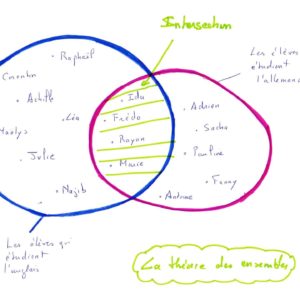 Intersection
Raphaël
Corentin
Achille
Léa
Maelys
Julie
Najib
Ida
Frida
Rayan
Marie
Adrien
Sacha
Pauline
Fanny
Antoine
Les élèves
étudient
l'allemand
Les élèves qui
étudient
l'anglais
La théorie des ensembles